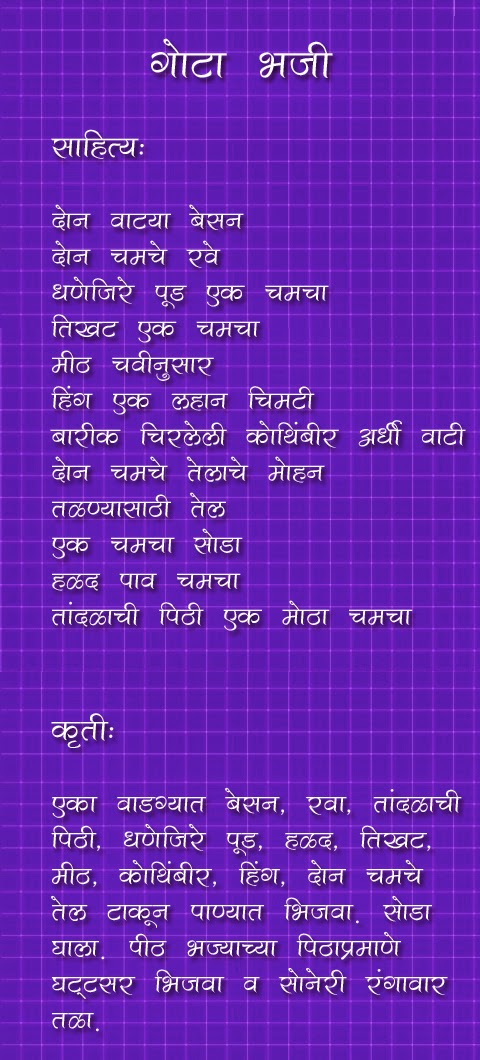 गोटा भजी
साहित्यः
दोन वाटया बेसन
दोन चमचे रवे
धणेजिरे पूड एक चमचा
तिखट एक चमचा
मीठ चवीनुसार
हिंग एक लहान चिमटी
बारीक चिरलेली कोथिंबीर अर्धी वाटी
दोन चमचे तेलाचे मोहन
तळण्यासाठी तेल
एक चमचा सोडा
हळद पाव चमचा
तांदळाची पिठी एक मोठा चमचा
कृतीः
एका वाडग्यात बेसन, रवा, तांदळाची
पिठी, धणेजिरे पूड, हळद, तिखट,
मीठ, कोथिंबीर, हिंग, दोन चमचे
तेल टाकून पाण्यात भिजवा. सोडा
घाला. पीठ भज्याच्या पिठाप्रमाणे
घट्टसर भिजवा व सोनेरी रंगावार
तळा.